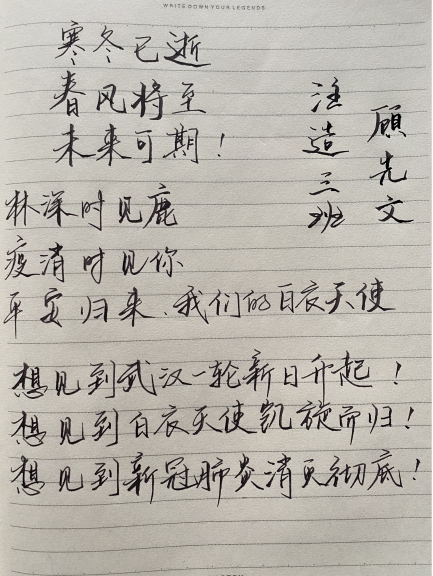 WRITE DOWN YOUR LEGENDS
寒冬已逝
春风将至
未来可期！
注造三班
顾先文
林深时见鹿
疫消时见你
平安归来，我们的白衣天使
想见到武汉一轮新日升起！
想见到白衣天使凯旋而归！
想见到新冠肺炎消灭彻底！